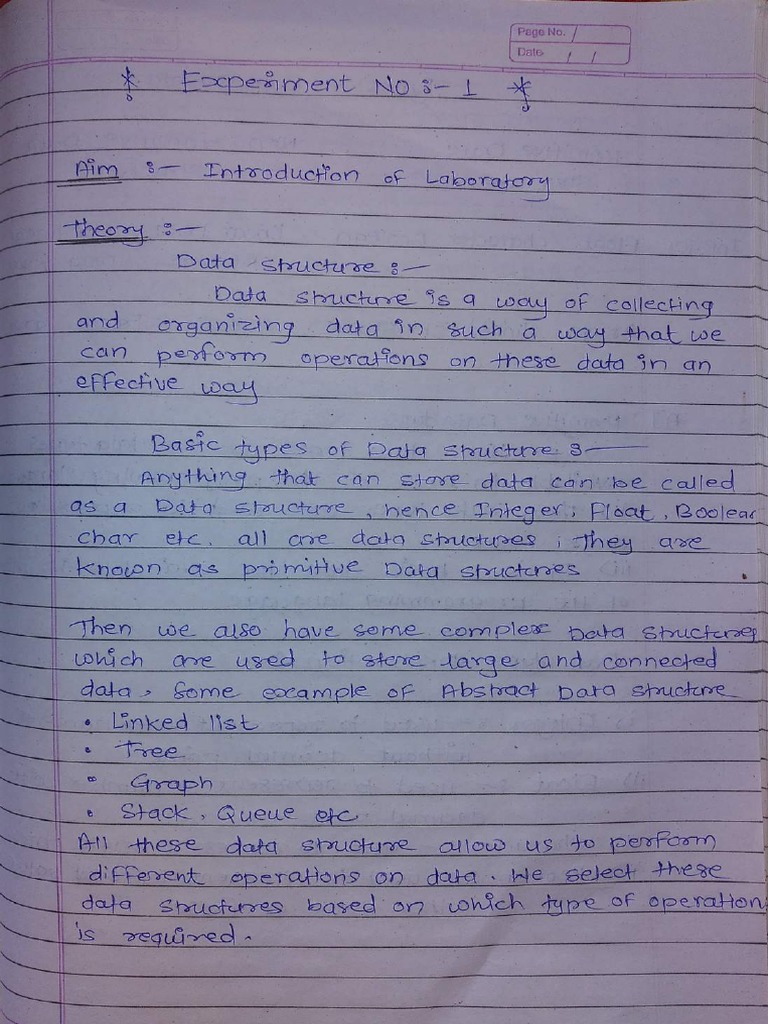 Page No. 1
Date / /
* Experiment No :- 1 *
Aim :- Introduction of Laboratory
Theory :-
Data structure :-
Data structure is a way of collecting
and organizing data in such a way that we
can perform operations on these data in an
effective way
Basic types of Data structure :-
Anything that can store data can be called
as a Data structure, hence Integer, Float, Boolean
char etc. all are data structures, They are
known as primitive Data structures
Then we also have some complex Data structures
which are used to store large and connected
data. Some example of Abstract Data structure
• Linked list
• Tree
• Graph
• Stack, Queue etc
All these data structure allow us to perform
different operations on data. We select these
data structures based on which type of operation
is required.